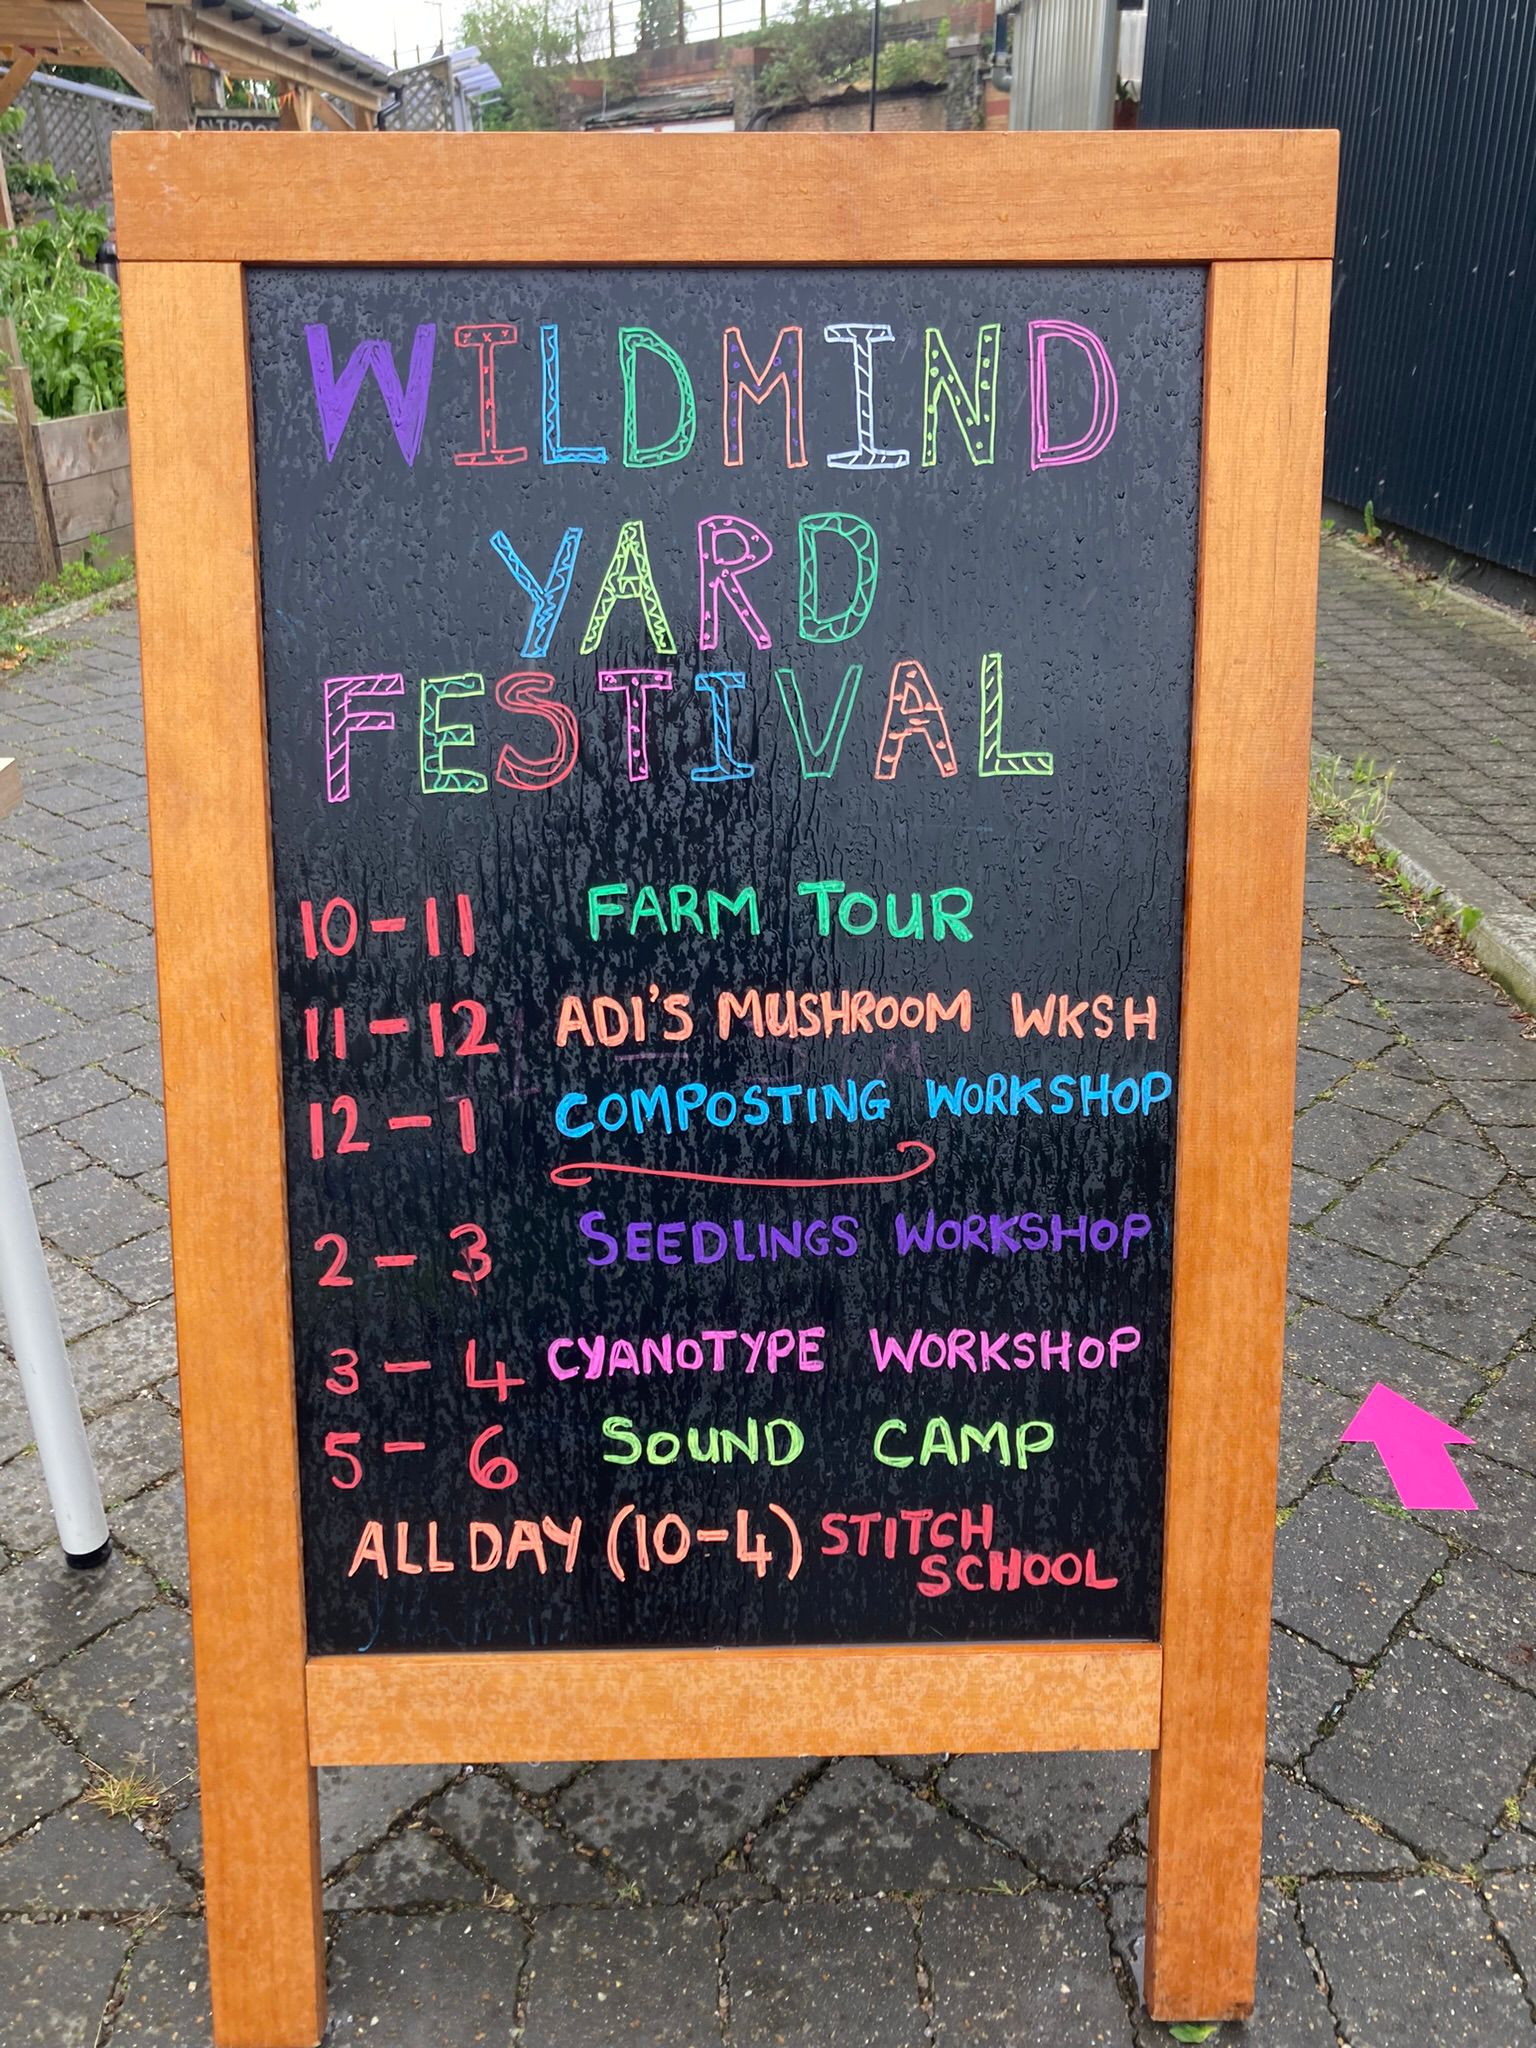 WILDMIND
YARD
FESTIVAL
10-11 FARM TOUR
11-12 ADI'S MUSHROOM WKSH
12-1 COMPOSTING WORKSHOP
2-3 SEEDLINGS WORKSHOP
3-4 CYANOTYPE WORKSHOP
5-6 SOUND CAMP
ALL DAY (10-4) STITCH
SCHOOL